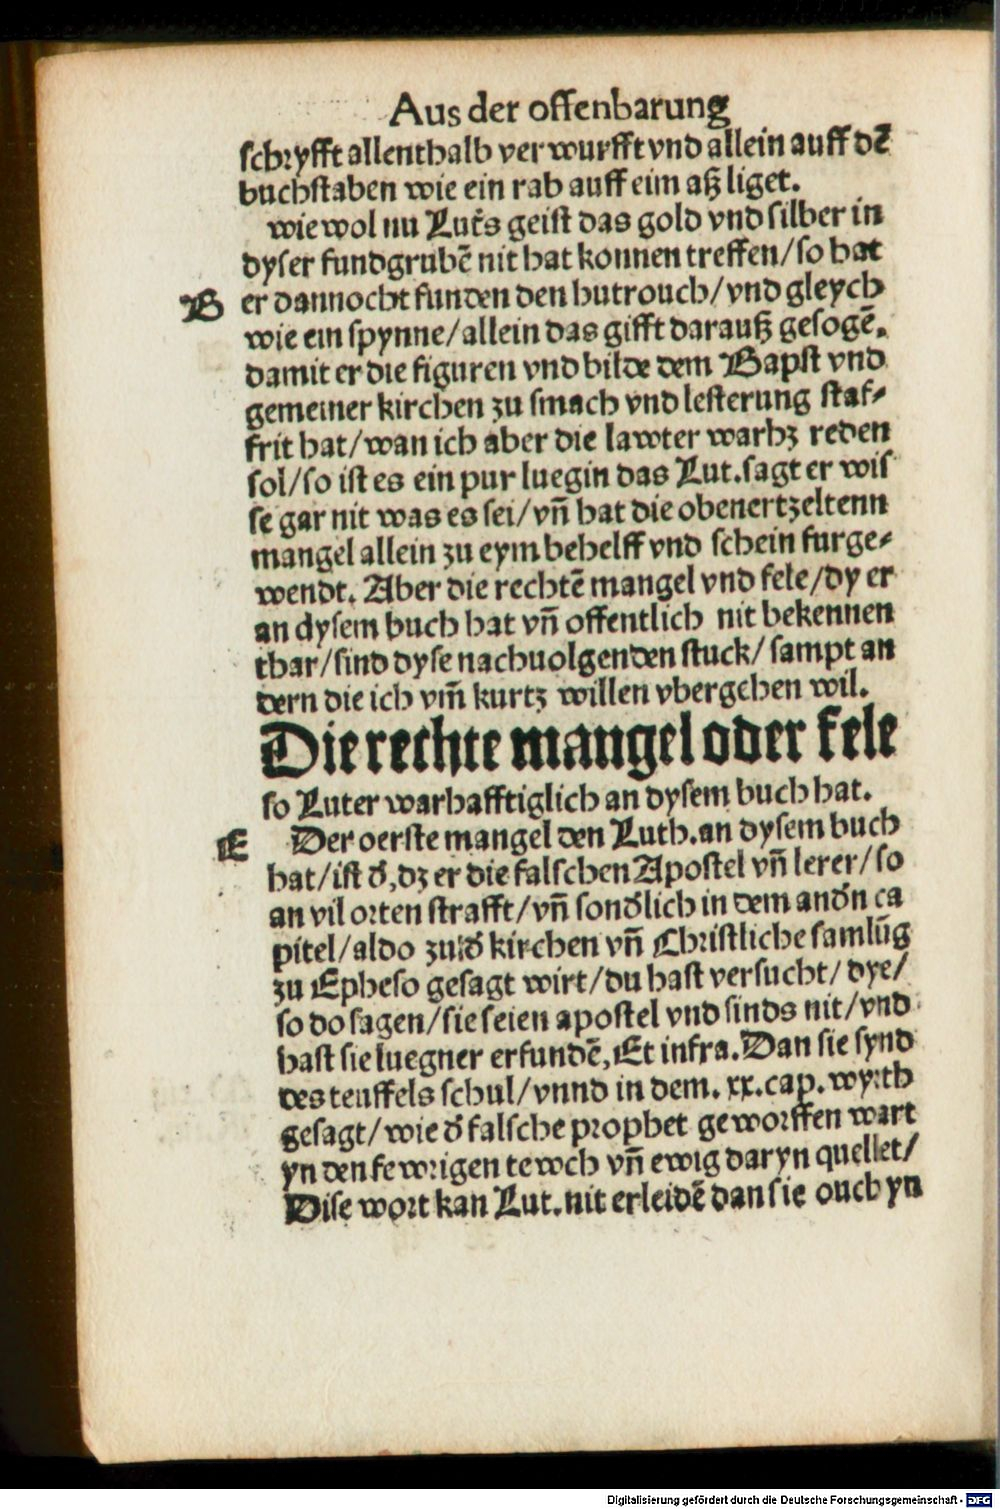 Aus der offenbarung
schryfft allenthalb verwurfft vnd allein auff dē
buchstaben wie ein rab auff eim aß liget.
wiewol nu Lut̄s geist das gold vnd silber in
dyser fundgrubē nit hat konnen treffen/so hat
B er dannocht funden den hutrouch/vnd gleych
wie ein spynne/allein das gifft darauß gesogē.
damit er die figuren vnd bilde dem Bapst vnd
gemeiner kirchen zu smach vnd lesterung staf⸗
frit hat/wan ich aber die lawter warhz reden
sol/so ist es ein pur luegin das Lut.sagt er wis
se gar nit was es sei/vn̄ hat die obenertzeltenn
mangel allein zu eym behelff vnd schein furge⸗
wendt. Aber die rechtē mangel vnd fele/dy er
an dysem buch hat vn̄ offentlich nit bekennen
thar/sind dyse nachuolgenden stuck/sampt an
dern die ich vm̄ kurtz willen vbergehen wil.
Die rechte mangel oder fele
so Luter warhafftiglich an dysem buch hat.
E Der oerste mangel den Luth.an dysem buch
hat/ist d̄,dz er die falschen Apostel vn̄ lerer/so
an vil orten strafft/vn̄ sond̄lich in dem and̄n ca
pitel/aldo zuld̄ kirchen vn̄ Christliche samlūg
zu Epheso gesagt wirt/du hast versucht/dye/
so do sagen/sie seien apostel vnd sinds nit/vnd
hast sie luegner erfundē,Et infra.Dan sie synd
des teuffels schul/vnnd in dem.xx.cap.wyrth
gesagt/wie d̄ falsche prophet geworffen wart
yn den fewrigen tewch vn̄ ewig daryn quellet/
Dise wort kan Lut.nit erleidē dan sie ouch yn
Digitalisierung gefördert durch die Deutsche Forschungsgemeinschaft - DFG